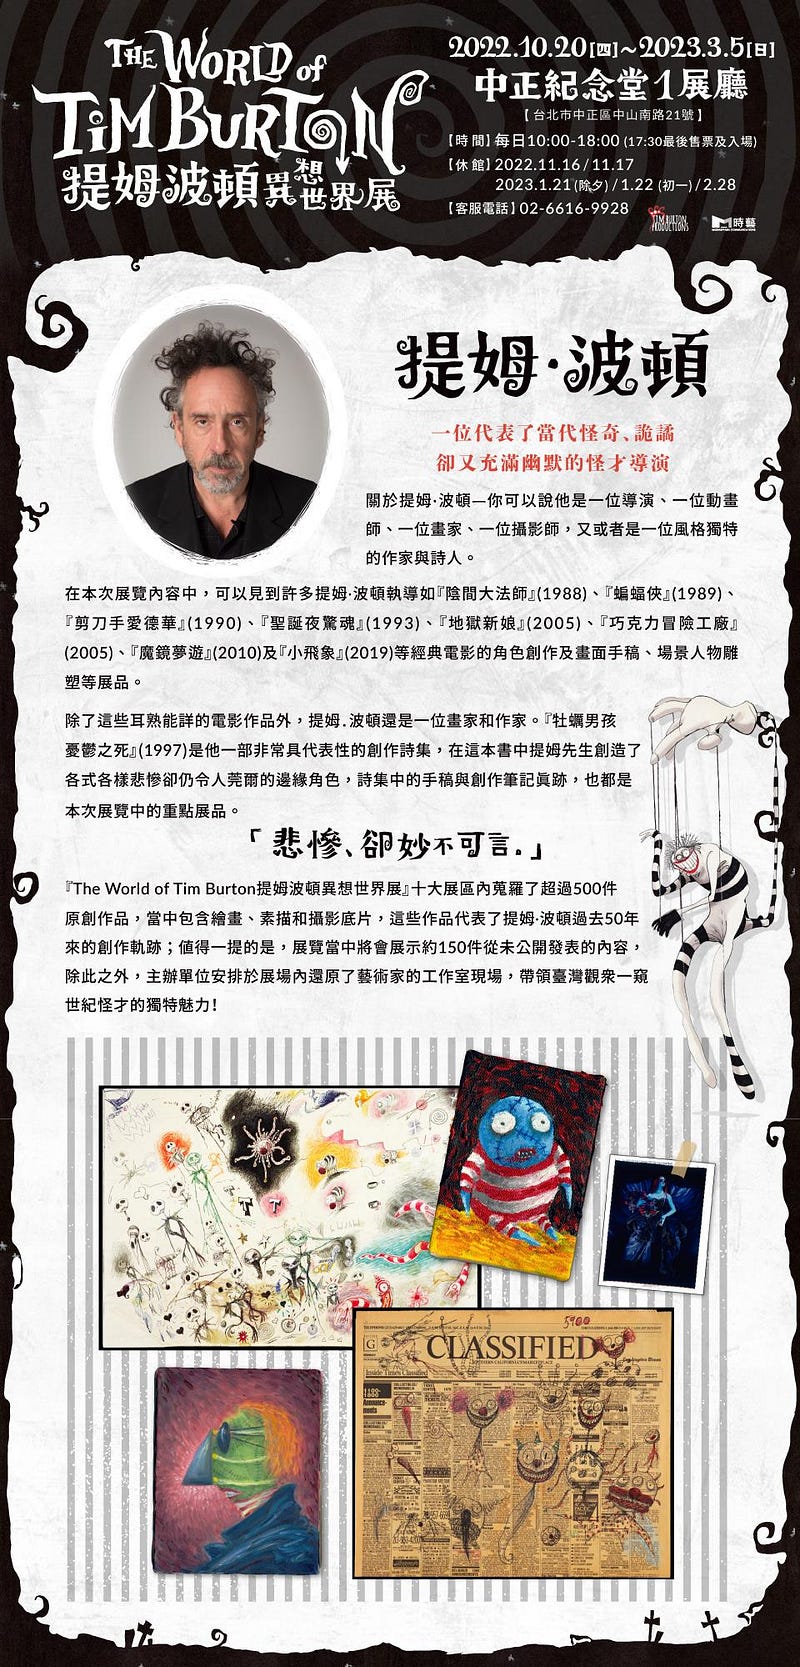 THE WORLD of
TIM BURTON
提姆波頓異想世界展
2022.10.20[四]~2023.3.5[日]
中正紀念堂1展廳
【台北市中正區中山南路21號】
【時間】每日10:00-18:00 (17:30最後售票及入場)
【休館】2022.11.16 / 11.17
2023.1.21 (除夕) / 1.22 (初一) / 2.28
【客服電話】02-6616-9928
TIM BURTON
PRODUCTIONS
時藝
提姆·波頓
一位代表了當代怪奇、詭譎
卻又充滿幽默的怪才導演
關於提姆·波頓—你可以說他是一位導演、一位動畫
師、一位畫家、一位攝影師，又或者是一位風格獨特
的作家與詩人。
在本次展覽內容中，可以見到許多提姆·波頓執導如『陰間大法師』(1988)、『蝙蝠俠』(1989)、
『剪刀手愛德華』(1990)、『聖誕夜驚魂』(1993)、『地獄新娘』(2005)、『巧克力冒險工廠』
(2005)、『魔鏡夢遊』(2010)及『小飛象』(2019)等經典電影的角色創作及畫面手稿、場景人物雕
塑等展品。
除了這些耳熟能詳的電影作品外，提姆.波頓還是一位畫家和作家。『牡蠣男孩
憂鬱之死』(1997)是他一部非常具代表性的創作詩集，在這本書中提姆先生創造了
各式各樣悲慘卻仍令人莞爾的邊緣角色，詩集中的手稿與創作筆記真跡，也都是
本次展覽中的重點展品。
「悲慘、卻妙不可言.」
『The World of Tim Burton提姆波頓異想世界展』十大展區內蒐羅了超過500件
原創作品，當中包含繪畫、素描和攝影底片，這些作品代表了提姆·波頓過去50年
來的創作軌跡；值得一提的是，展覽當中將會展示約150件從未公開發表的內容，
除此之外，主辦單位安排於展場內還原了藝術家的工作室現場，帶領臺灣觀眾一窺
世紀怪才的獨特魅力！
5900
G
CLASSIFIED
Inside Times Classified